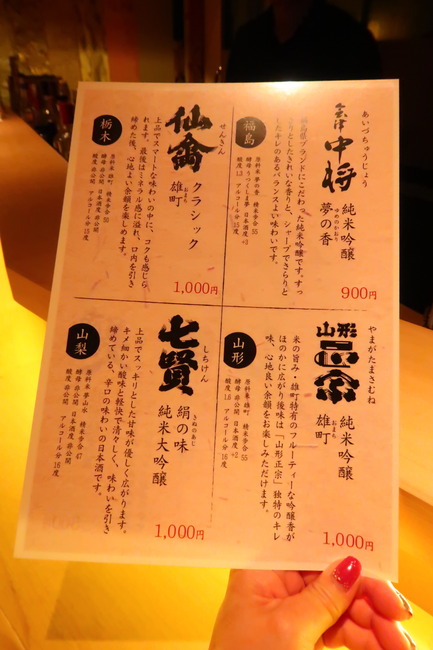 あいづちゅうじょう
会津中将
純米吟醸
夢の香
ゆめのかおり
900円
福島
島県ブランドにこだわった純米吟醸です。すっ
きりとしたきれいな香りと、シャープでさらりと
したキレのあるバランスよい味わいです。
原料米 夢の香 精米歩合 55
酵母 うつくしま夢 日本酒度 +3
酸度 1.3 アルコール分 15度
せんきん
仙禽
クラシック
雄町
おまち
1,000円
栃木
上品でスマートな味わいの中に、コクも感じら
れます。最後はミネラル感に溢れ、口内を引き
締めた後、心地よい余韻を楽しめます。
原料米 雄町 精米歩合 50
酵母 非公開 日本酒度 非公開
酸度 非公開 アルコール分 15度
やまがたまさむね
山形正宗
純米吟醸
雄町
おまち
1,000円
山形
米の旨み・雄町特有のフルーティーな吟醸香が
ほのかに広がり後味は「山形正宗」独特のキレ
味、心地良い余韻をお楽しみただけます。
原料米 雄町 精米歩合 55
酵母 非公開 日本酒度 +2
酸度 非公開 アルコール分 16度
しちけん
七賢
絹の味
きぬのあじ
純米大吟醸
1,000円
山梨
上品でスッキリとした甘味が優しく広がります。
キメ細かい酸味と軽快で清々しく、味わいを引き
締めている、辛口の味わいの日本酒です。
原料米 夢山水 精米歩合 47
酵母 非公開 日本酒度 非公開
酸度 非公開 アルコール分 16度